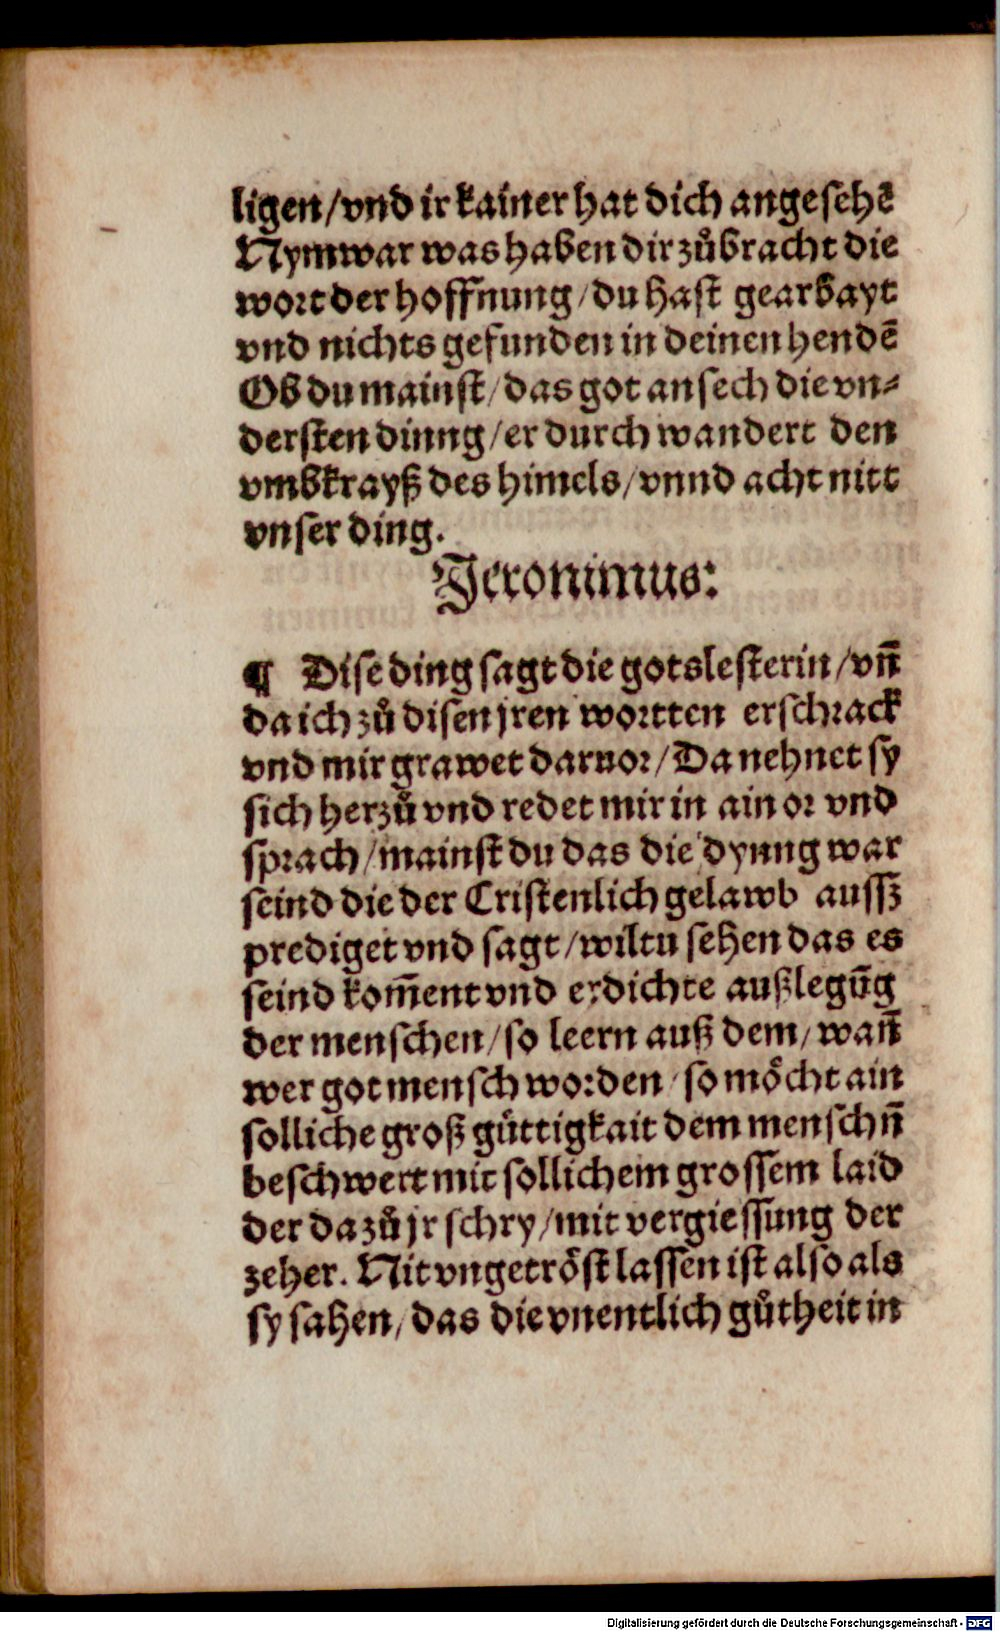 ligen/vnd ir kainer hat dich angesehē
Nym war was haben dir zůbracht die
wort der hoffnung/du hast gearbayt
vnd nichts gefunden in deinen hendē
Ob du mainst/das got ansech die vn⸗
dersten dinng/er durch wandert den
vmbkrayß des himels/vnnd acht nitt
vnser ding.
Jeronimus:
¶ Dise ding sagt die gotslesterin/vn̄
da ich zů disen jren wortten erschrack
vnd mir grawet daruor/Da nehnet sy
sich herzů vnd redet mir in ain or vnd
sprach/mainst du das die dynng war
seind die der Cristenlich gelawb aussz
prediget vnd sagt/wiltu sehen das es
seind kom̄ent vnd erdichte außlegūg
der menschen/so leern auß dem/wan̄
wer got mensch worden/so möcht ain
solliche groß gůttigkait dem menschn̄
beschwert mit sollichem grossem laid
der da zů jr schry/mit vergiessung der
zeher. Nit vngetröst lassen ist also als
sy sahen/das die vnentlich gůtheit in
Digitalisierung gefördert durch die Deutsche Forschungsgemeinschaft - DFG